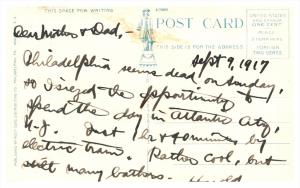 THIS SPACE FOR WRITING
POST CARD
THIS SIDE IS FOR THE ADDRESS
UNITED STATES
ONE CENT
FOREIGN
TWO CENTS
Dear Mother & Dad,-
Sept 9, 1917
Philadelphia seems dead on Sunday,
so I seized the opportunity to
spend the day in Atlantic City,
N.J. Just hr & minutes by
electric train. Rather cool, but
still many bathers.